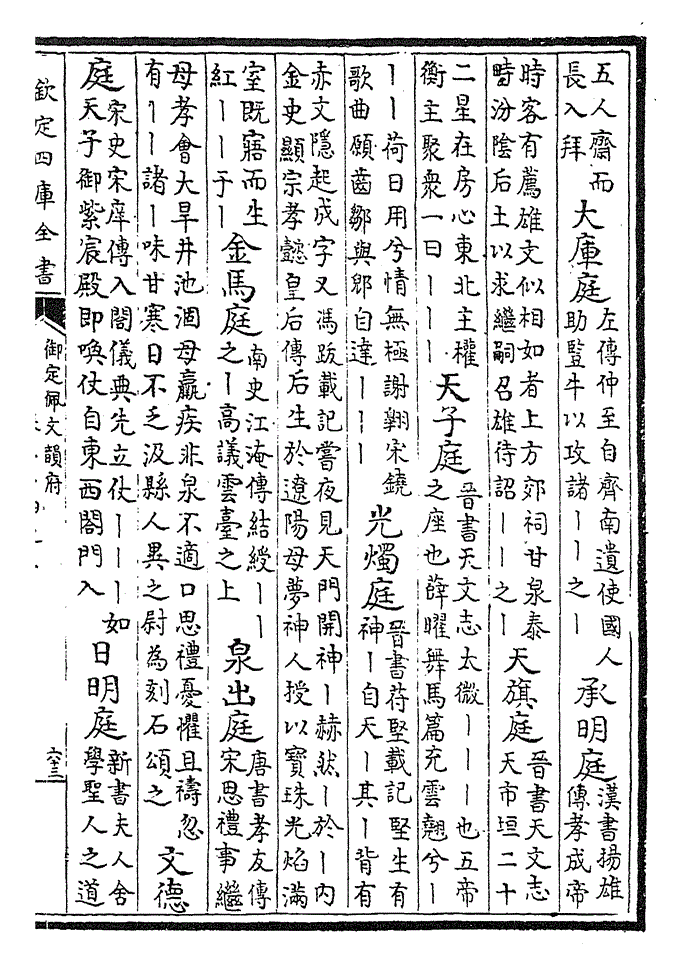 五人齋而
長入拜
大庫庭
左傳仲至自齊南遺使國人
助豎牛以攻諸｜｜之｜
承明庭
漢書揚雄
傳孝成帝
時客有薦雄文似相如者上方郊祠甘泉泰
畤汾陰后土以求繼嗣召雄待詔｜｜之｜
天旗庭
晉書天文志
天市垣二十
二星在房心東北主權
衡主聚衆一曰｜｜｜
天子庭
晉書天文志太微｜｜｜也五帝
之座也薛曜舞馬篇充雲翹兮｜
｜｜荷日用兮情無極謝翱宋鐃
歌曲頎齒鄒與郳自達｜｜｜
光燭庭
晉書苻堅載記堅生有
神｜自天｜其｜背有
赤文隱起成字又馮跋載記嘗夜見天門開神｜赫然｜於｜內
金史顯宗孝懿皇后傳后生於遼陽母夢神人授以寶珠光焰滿
室既寤而生
紅｜｜于｜
金馬庭
南史江淹傳結綬｜｜
之｜高議雲臺之上
泉出庭
唐書孝友傳
宋思禮事繼
母孝會大旱井池涸母羸疾非泉不適口思禮憂懼且禱忽
有｜｜諸｜味甘寒日不乏汲縣人異之尉為刻石頌之
文德
庭
宋史宋庠傳入閤儀典先立仗｜｜｜如
天子御紫宸殿即喚仗自東西閤門入
日明庭
新書夫人舍
學聖人之道
欽定四庫全書
御定佩文韻府
六十三